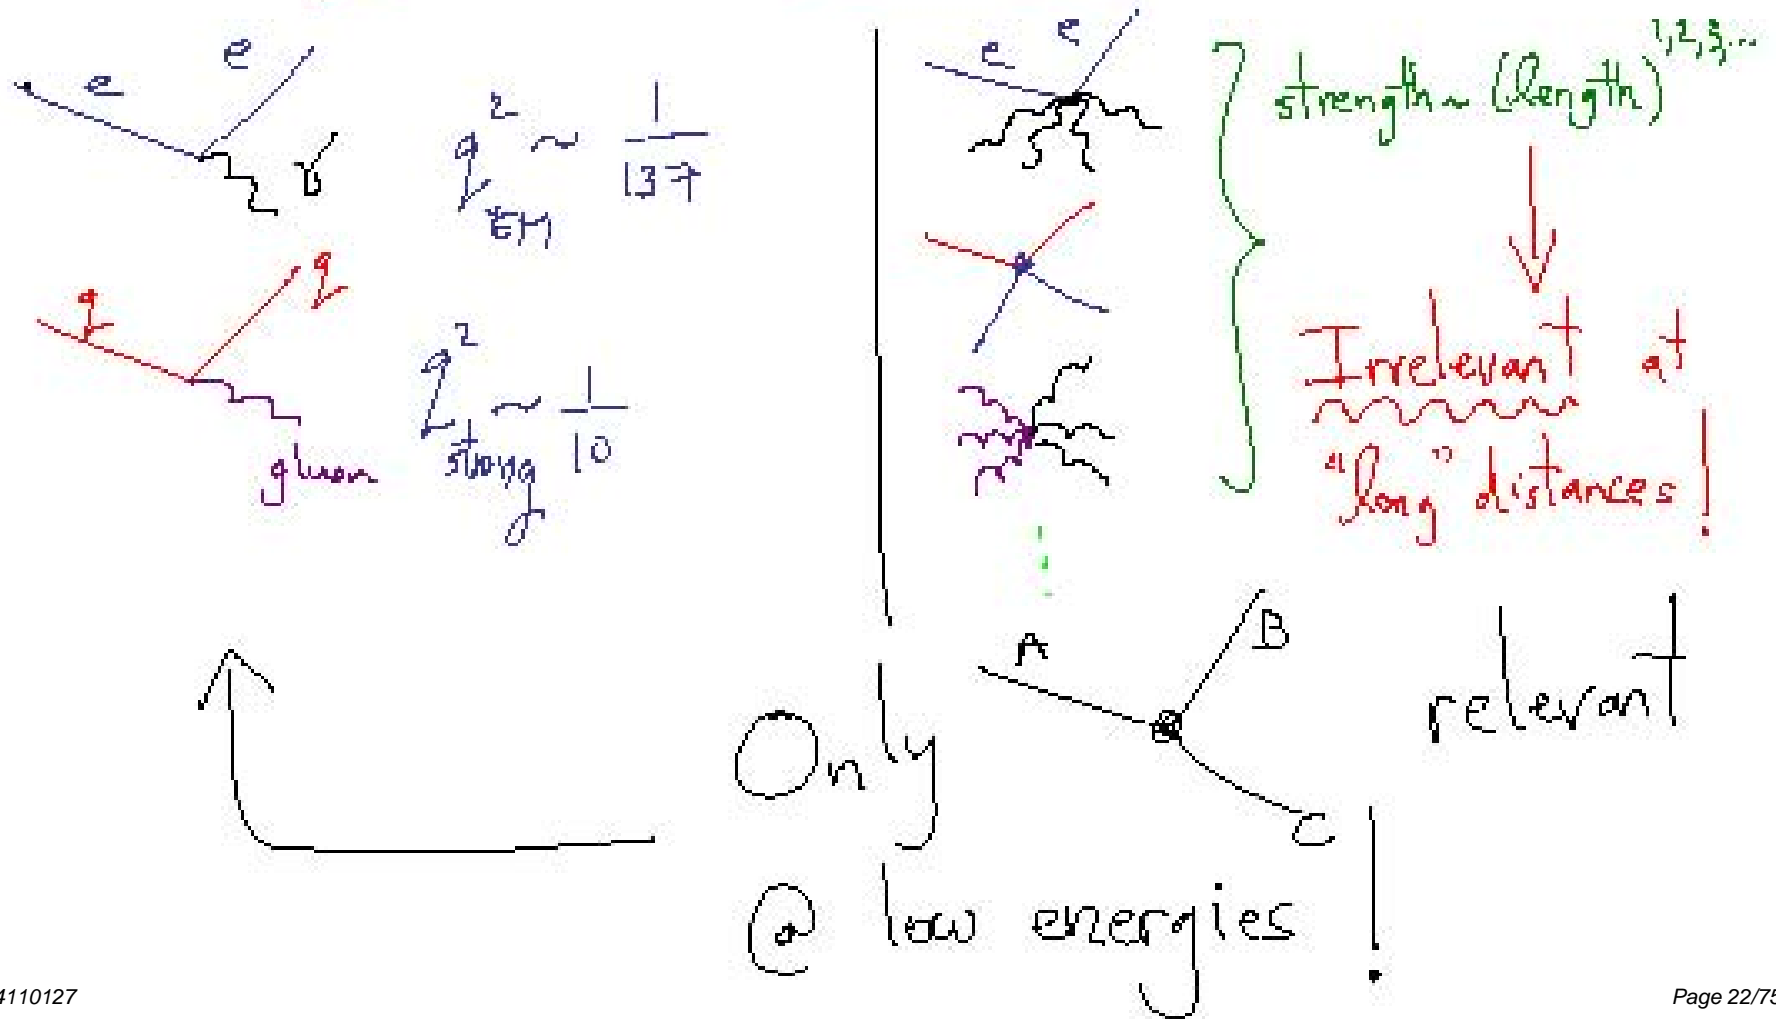 e e
γ
g²EM ~ 1/137
q q
gluon
g²strong ~ 1/10
e e
strength ~ (length)^1,2,3,...
Irrelevant at
"long" distances!
A B
C
Only relevant
@ low energies!
4110127
Page 22/75